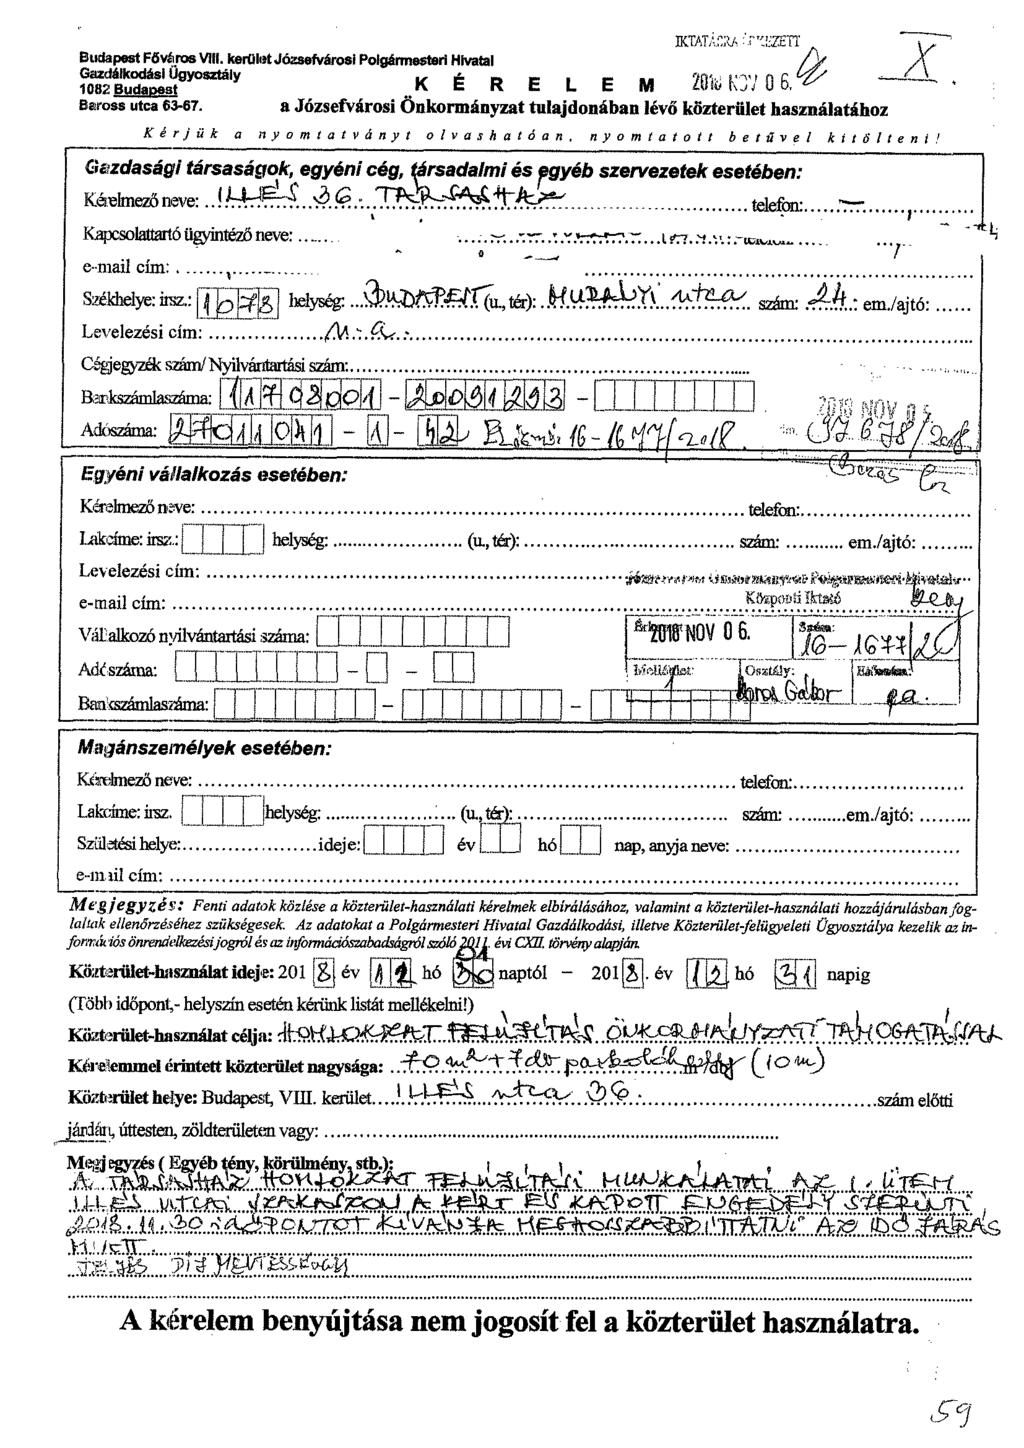 IKTATÁSRA ÉRKEZETT
2018 NOV 06.
X.
Budapest Főváros VIII. kerület Józsefvárosi Polgármesteri Hivatal
Gazdálkodási Ügyosztály
1082 Budapest
Baross utca 63-67.
K É R E L E M
a Józsefvárosi Önkormányzat tulajdonában lévő közterület használatához
Kérjük a nyomtatványt olvashatóan, nyomtatott betűvel kitölteni!
Gazdasági társaságok, egyéni cég, társadalmi és egyéb szervezetek esetében:
Kérelmező neve: ILLÉS 36. TÁRSASHÁZ telefon: –
Kapcsolattartó ügyintéző neve:
e-mail cím:
Székhelye: irsz.: 1078 helység: BUDAPEST (u., tér): MURÁNYI utca szám: 24. em./ajtó:
Levelezési cím: u.a.
Cégjegyzék szám/ Nyilvántartási szám:
Bankszámlaszáma: 11708001 - 20091293 -
2018 NOV 05
Adószáma: 27011041 - 1 - 42 Előzmény 16-1677/2018
Egyéni vállalkozás esetében:
Kérelmező neve: telefon:
Lakcíme: irsz.: helység: (u., tér): szám: em./ajtó:
Levelezési cím:
Józsefvárosi Önkormányzat Polgármesteri Hivatala
e-mail cím:
Központi Iktató
Vállalkozó nyilvántartási száma:
Érkezett: 2018 NOV 06. Szám: 16-1677/26
Adószáma: - -
Melléklet: 1 Osztály: Boros Gábor Előadó: pa.
Bankszámlaszáma: - -
Magánszemélyek esetében:
Kérelmező neve: telefon:
Lakcíme: irsz. helység: (u., tér): szám: em./ajtó:
Születési helye: ideje: év hó nap, anyja neve:
e-mail cím:
Megjegyzés: Fenti adatok közlése a közterület-használati kérelmek elbírálásához, valamint a közterület-használati hozzájárulásban fog-
laltak ellenőrzéséhez szükségesek. Az adatokat a Polgármesteri Hivatal Gazdálkodási, illetve Közterület-felügyeleti Ügyosztálya kezelik az in-
formációs önrendelkezési jogról és az információszabadságról szóló 2011. évi CXII. törvény alapján.
01
Közterület-használat ideje: 2018 év 12 hó 30 naptól – 2018. év 12 hó 31 napig
(Több időpont,- helyszín esetén kérünk listát mellékelni!)
Közterület-használat célja: HOMLOKZAT FELÚJÍTÁS ÖNKORMÁNYZATI TÁMOGATÁSSAL
Kérelemmel érintett közterület nagysága: 70 m2 + 7 db parkolóhely (10 m)
Közterület helye: Budapest, VIII. kerület ILLÉS utca 36. szám előtti
járdán, úttesten, zöldterületen vagy:
Megjegyzés ( Egyéb tény, körülmény, stb.):
A TÁRSASHÁZ HOMLOKZAT FELÚJÍTÁSI MUNKÁLATAI AZ I. ÜTEM
ILLÉS UTCAI SZAKASZON A KÉRT ÉS KAPOTT ENGEDÉLY SZERINTI
2018.11.30 időPONTOT KÍVÁNJA MEGHOSSZABBÍTTATNI AZ IDŐJÁRÁS
MIATT.
TELJES DÍJ MENTESSÉGGEL
A kérelem benyújtása nem jogosít fel a közterület használatra.
59